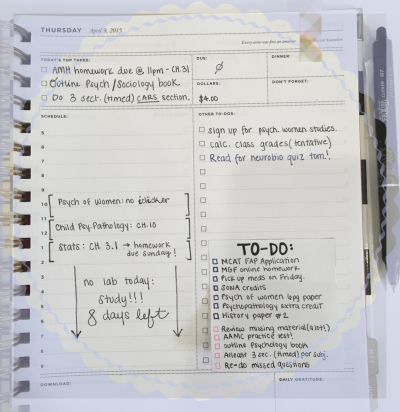 THURSDAY April 9, 2015
TODAY'S TOP THREE:
AMH homework due @ 11pm - CH.31
Outline Psych/Sociology book
Do 3 sect. (timed) CARS section.
DUE:
DINNER
DOLLARS:
$4.00
DON'T FORGET:
SCHEDULE:
10 Psych of women: no iclicker
11
12 Child Psy.Pathology: CH.10
1 Stats: CH. 3.1 → homework
due sunday!
no lab today:
study!!!
8 days left
OTHER TO-DO:
sign up for psych. women studies.
calc. class grades (tentative)
Read for neurobio quiz tom!
TO-DO:
MCAT FAP Application
MGF online homework
Pick up meds on Friday.
SONA credits
Psych of women 6pg paper
Psychopathology extra credit
History paper #2
Review missing material (a lot!)
AAMC practice test!
outline Psychology book
Atleast 3 sec. (timed) per subj.
Re-do missed questions
DOWNLOAD:
DAILY GRATITUDE: